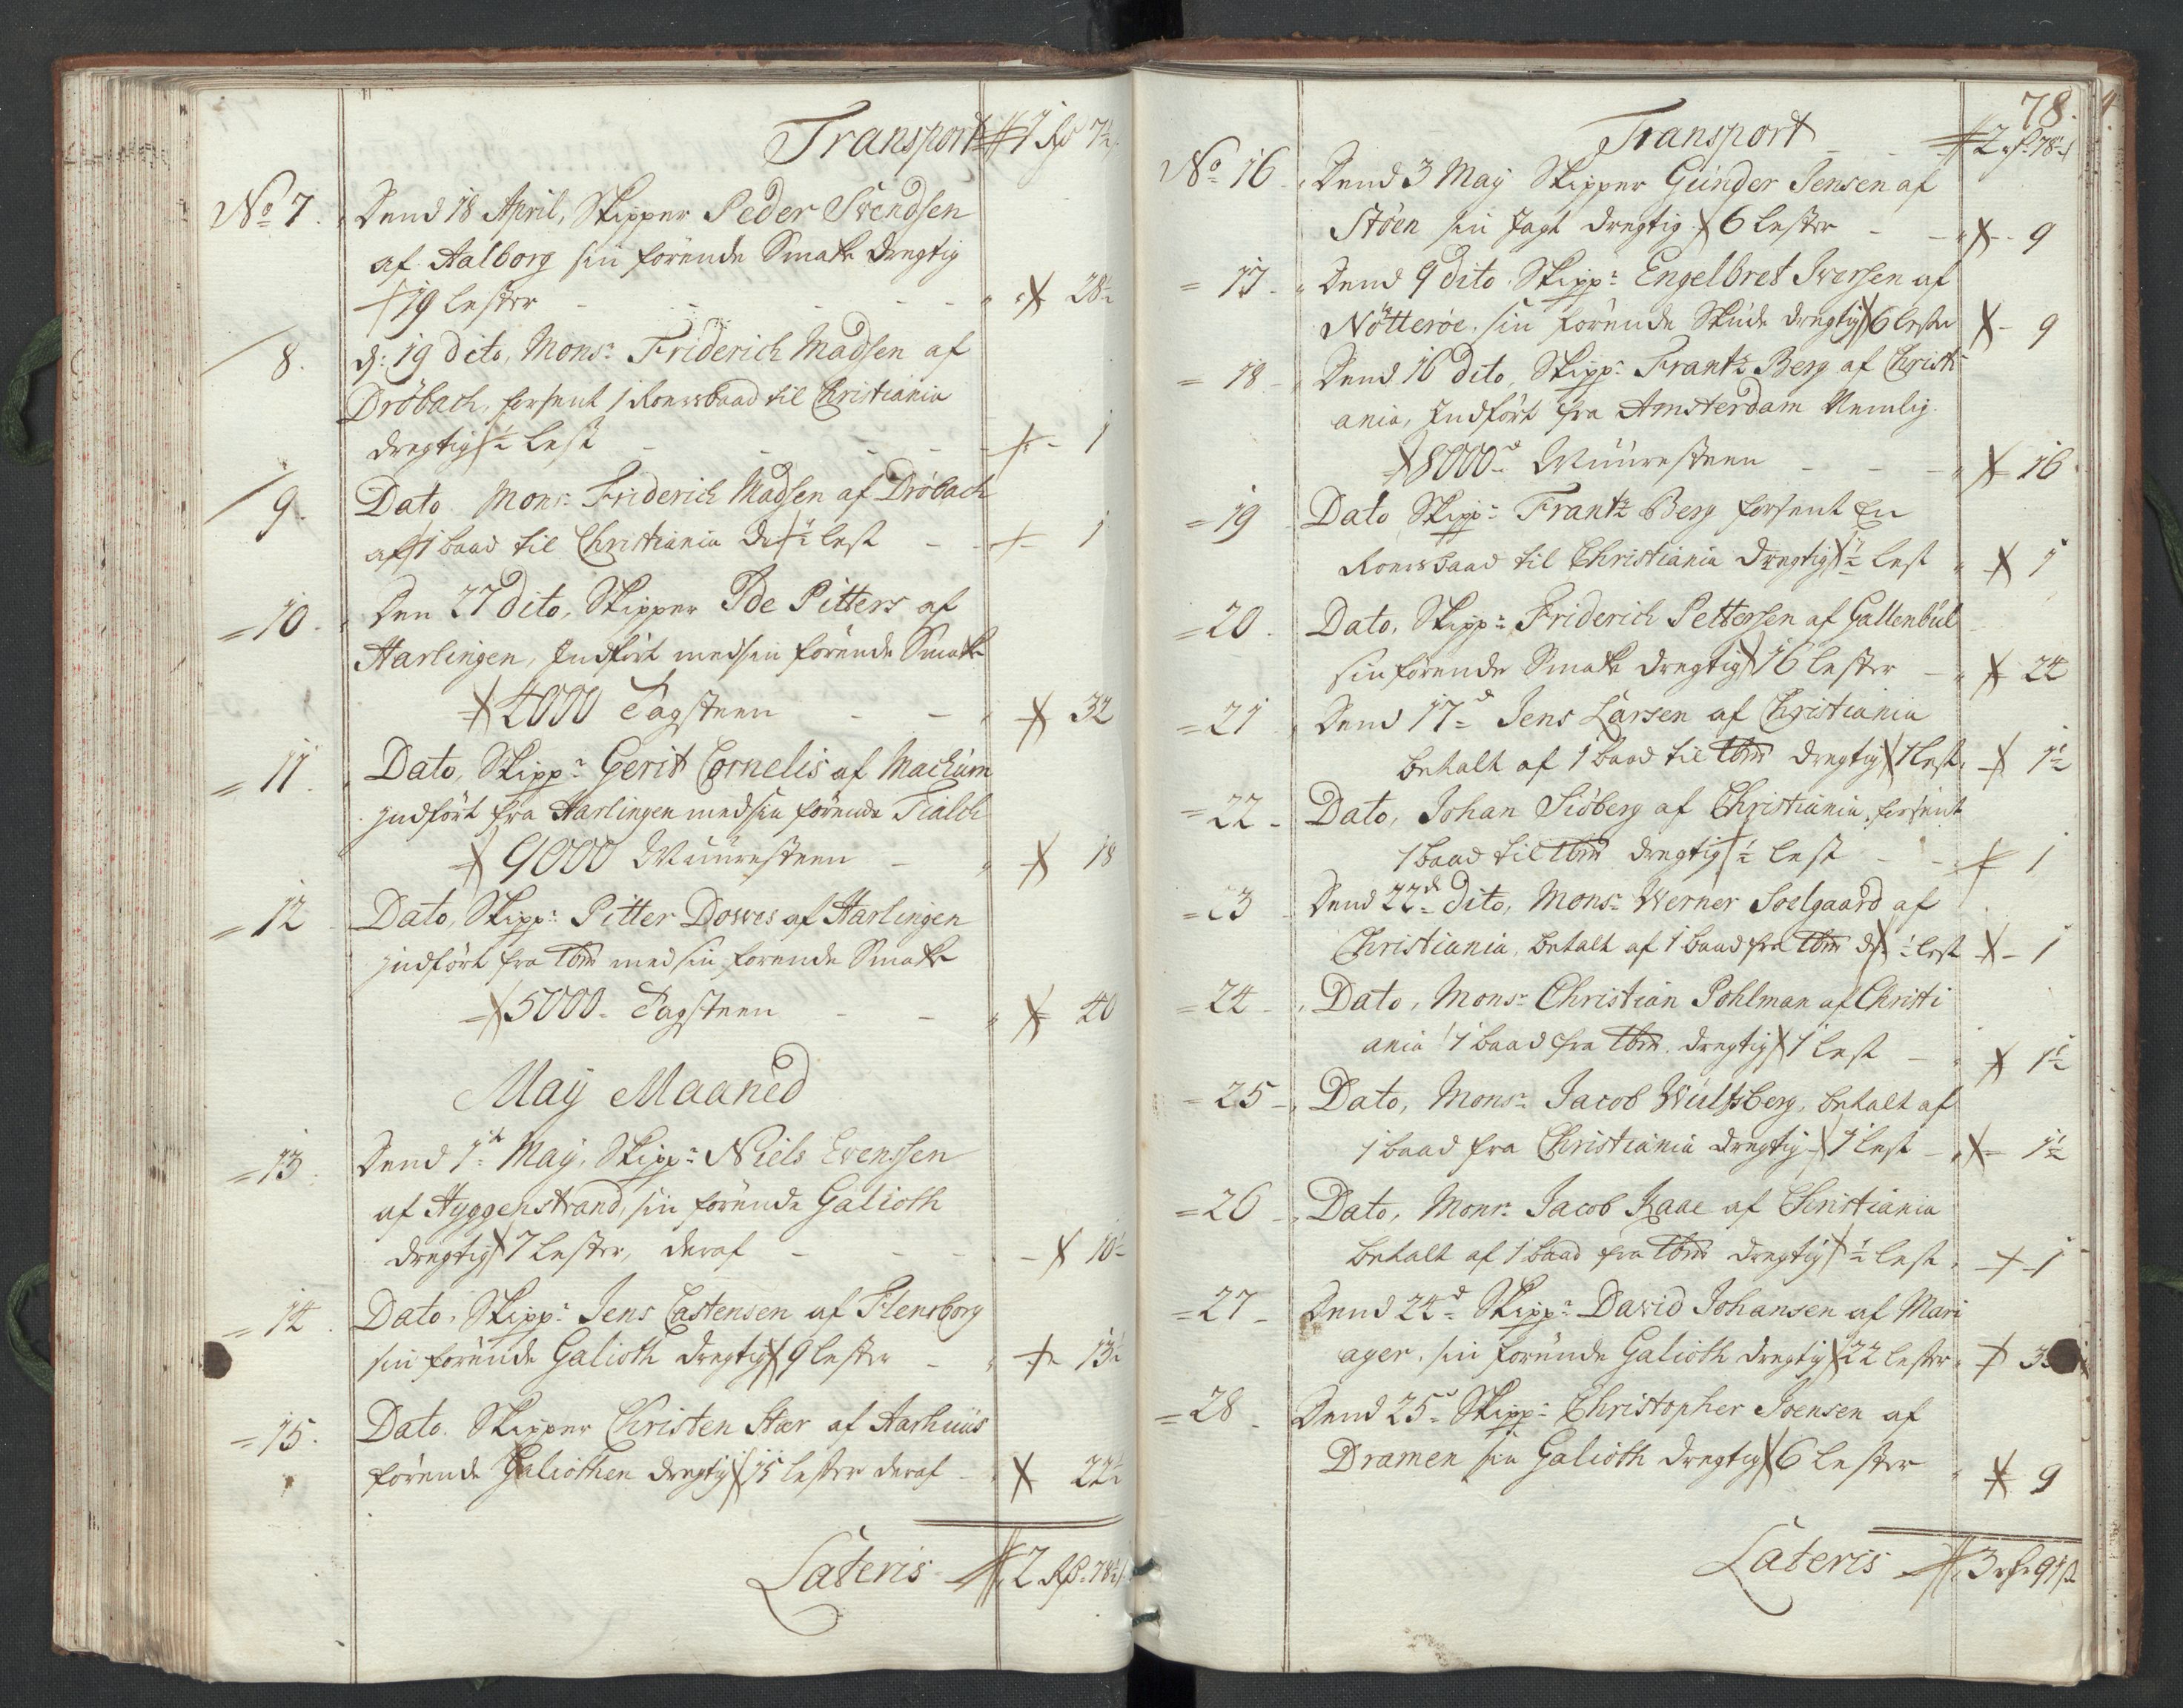 Transport # 1 Rd 7½
No 7. Dend 18 April, Skipper Peder Svendsen
af Aalborg sin förende Smake dregtig
19 lester - - - 28½
8. d: 19 dito, Monsr Friderich Madsen af
Dröbach, forsent 1 Roersbaad til Christiania
dregtig ½ lest - - 1
9. Dato Monsr Friderich Madsen af Dröbach
af 1 baad til Christiania dr ½ lest - - 1
10. Den 27 dito, Skipper Ide Pitters af
Harlingen, Indfört med sin förende Smake
4000 Tagsteen - - 32
11. Dato, Skippr Gerit Cornelis af Machum
indfört fra Harlingen med sin förende Tialch
9000 Muuresteen - 18
12 Dato, Skippr Pitter Dowes af Harlingen
indfört fra tbm med sin förende Smake
5000 Tagsteen - - 40
May Maaned
13. Dend 1te May, Skippr Niels Evenssen
af Hyggenstrand, sin förende Galioth
dregtig 7 lester, deraf - - 10½
14. Dato, Skippr Jens Castensen af Flensborg
sin förende Galioth dregtig 9 lester - 13½
15. Dato. Skipper Christen Stær af Aarhuus
förende Galiothen dregtig 15 lester deraf - 22½
Lateris # 2 Rd 78½
78.
Transport - - # 2 rd 78½
No 16. Dend 3 May Skipper Gunder Jensen af
Stöen sin Jagt dregtig 6 lester - - 9
= 17. Dend 9 dito, Skippr Engelbret Iversen af
Nötteröe, sin förende Skude dregtig 6 lester - 9
= 18 - Dend 16 dito, Skippr Frantz Berg af Christi
ania, Indfört fra Amsterdam Nemlig
8000d Muuresteen - - - 16
= 19 Dato Skippr Frantz Berg forsent En
Roersbaad til Christiania dregtig ½ lest 1
= 20. Dato, Skippr Friderich Pettersen af Gallenbul
sin förende Smake dregtig 16 lester - 24
= 21 Dend 17d Jens Larsen af Christiania
betalt af 1 baad til tbm dregtig 1 lest. 1½
= 22 - Dato, Johan Siöberg af Christiania, forsent
1 baad til tbm dregtig ½ lest - - 1
= 23 Dend 22d dito, Monsr Werner Soelgaard af
Christiania, betalt af 1 baad fra tbm dr ½ lest - 1
= 24 - Dato, Monsr Christian Pohlman af Christi
ania 1 baad fra tbm. dregtig 1 lest - 1½
= 25 - Dato, Monsr Jacob Wulfsberg, betalt af
1 baad fra Christiania dregtig 1 lest - 1½
= 26 - Dato, Monsr Jacob Kaae af Christiania
betalt af 1 baad fra tbm dregtig ½ lest. - 1
= 27 - Dend 24d Skippr David Johansen af Mari
ager, sin förende Galioth dregtig 22 lester 3
= 28 - Dend 25d Skippr Christopher Joensen af
Dramen sin Galioth dregtig 6 lester 9
Lateris # 3 rd 91